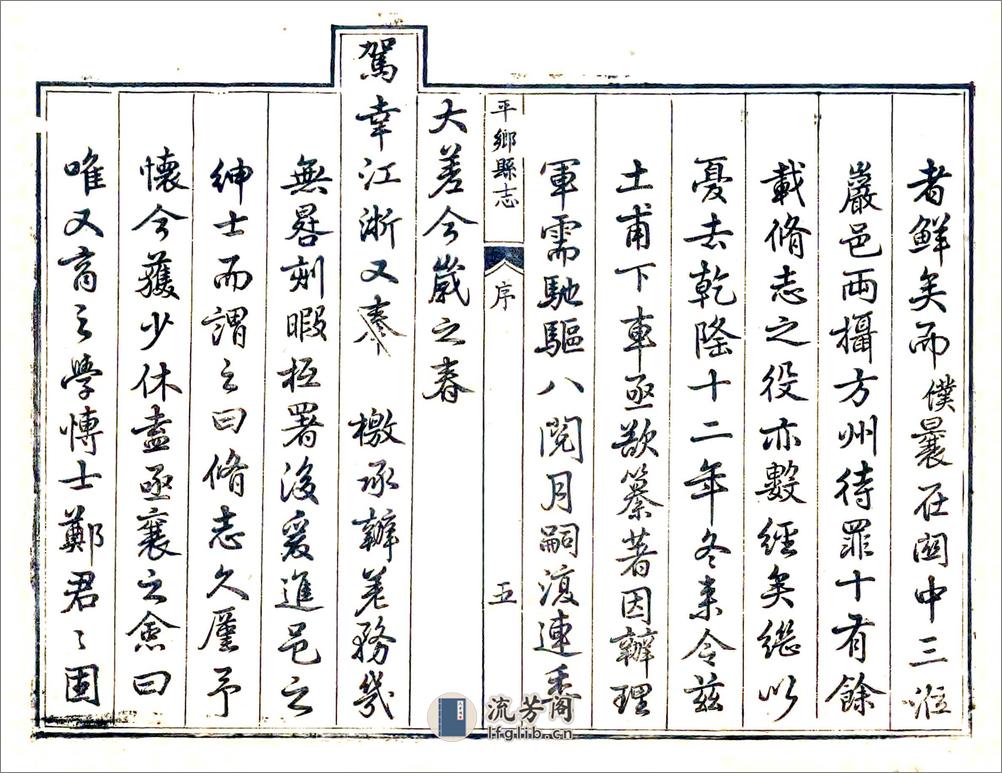 者鮮矣而僕曩在関中三涖
巖邑両攝方州待罪十有餘
載脩志之役亦數經矣繼以
憂去乾隆十二年冬来令茲
土甫下車亟欲纂著因辦理
軍需馳驅八閱月嗣復連
大差今嵗之春
平鄉縣志
序
五
駕幸江浙又奉 檄承辦差務幾
無晷刻暇抵署後爰進邑之
紳士而謂之曰脩志久廑予
懷今獲少休盍亟襄之僉曰
唯又商之學博士鄭君〻固
流芳阁
lfglib.cn